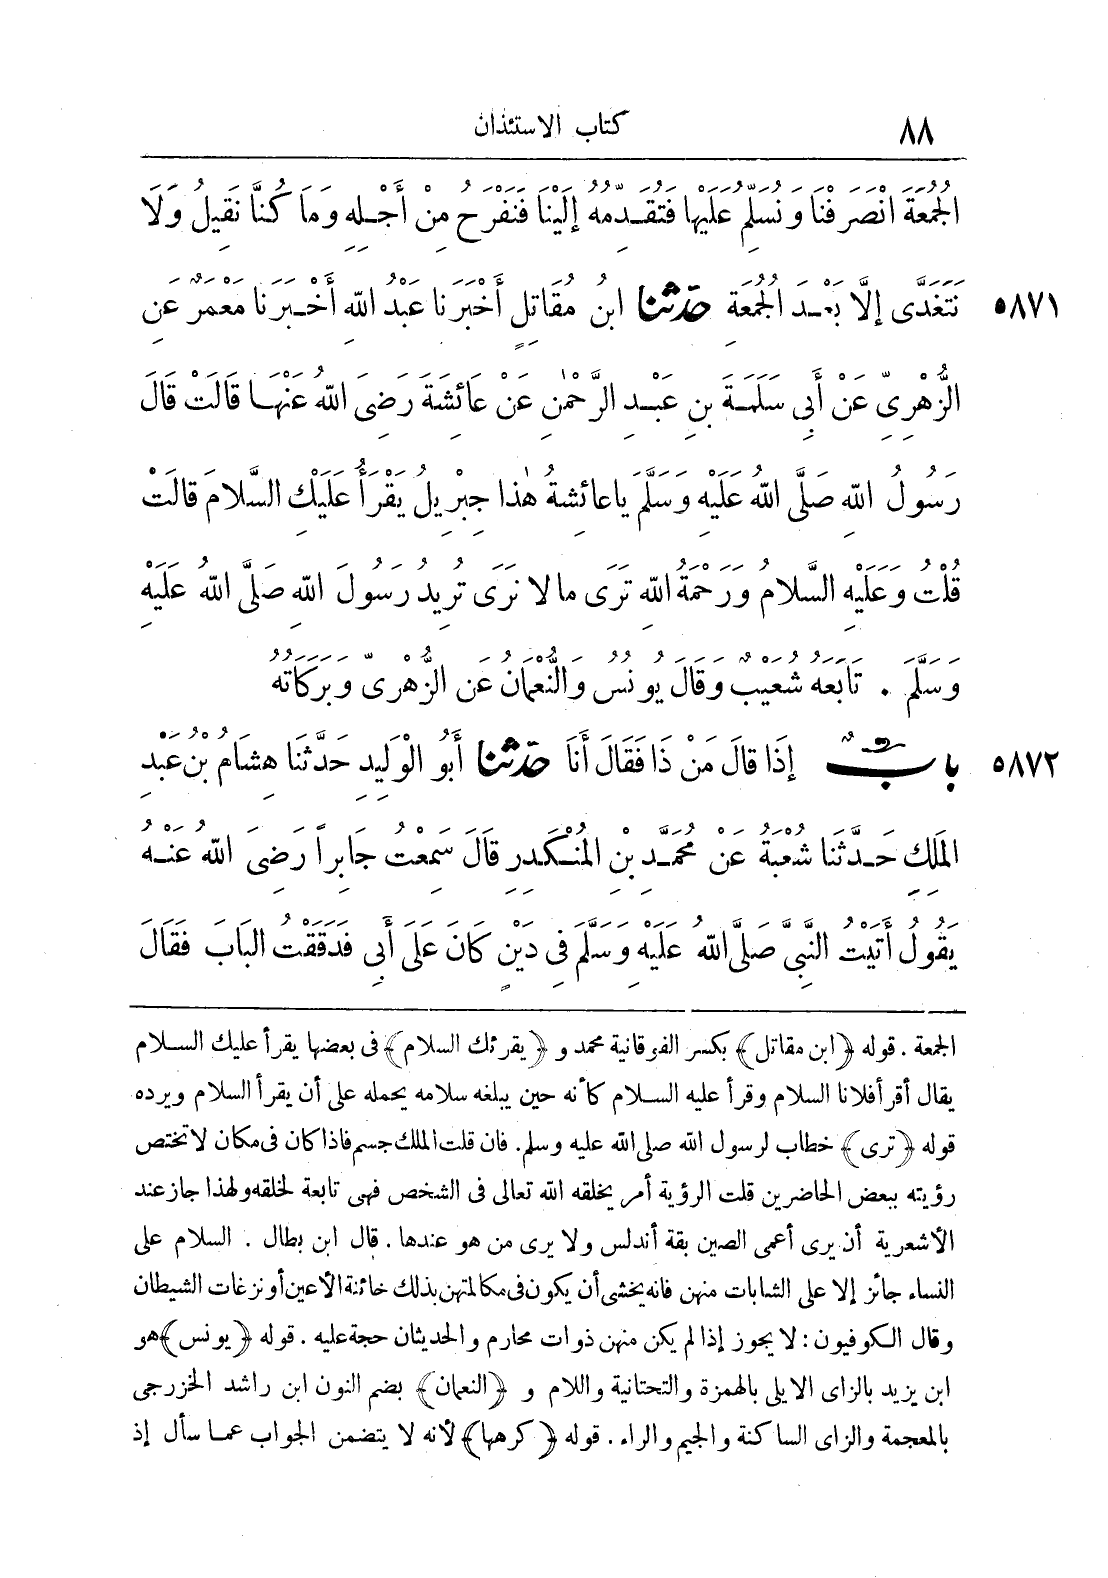 ٨٨ كتاب الاستئذان
الْجُمُعَةَ انْصَرَفْنَا وَنُسَلِّمُ عَلَيْهَا فَتُقَدِّمُهُ إِلَيْنَا فَنَفْرَحُ مِنْ أَجْلِهِ وَمَا كُنَّا نَقِيلُ وَلَا
٥٨٧١ نَتَغَدَّى إِلَّا بَعْدَ الْجُمُعَةِ حَدَّثَنَا ابْنُ مُقَاتِلٍ أَخْبَرَنَا عَبْدُ اللهِ أَخْبَرَنَا مَعْمَرٌ عَنِ
الزُّهْرِيِّ عَنْ أَبِي سَلَمَةَ بْنِ عَبْدِ الرَّحْمٰنِ عَنْ عَائِشَةَ رَضِىَ اللهُ عَنْهَا قَالَتْ قَالَ
رَسُولُ اللهِ صَلَّى اللهُ عَلَيْهِ وَسَلَّمَ يَاعَائِشَةُ هٰذَا جِبْرِيلُ يَقْرَأُ عَلَيْكِ السَّلَامَ قَالَتْ
قُلْتُ وَعَلَيْهِ السَّلَامُ وَرَحْمَةُ اللهِ تَرَى مَالَا نَرَى تُرِيدُ رَسُولَ اللهِ صَلَّى اللهُ عَلَيْهِ
وَسَلَّمَ . تَابَعَهُ شُعَيْبٌ وَقَالَ يُونُسُ وَالنُّعْمَانُ عَنِ الزُّهْرِىِّ وَبَرَكَاتُهُ
٥٨٧٢ بَابٌ إِذَا قَالَ مَنْ ذَا فَقَالَ أَنَا حَدَّثَنَا أَبُو الْوَلِيدِ حَدَّثَنَا هِشَامُ بْنُ عَبْدِ
الْمَلِكِ حَدَّثَنَا شُعْبَةُ عَنْ مُحَمَّدِ بْنِ الْمُنْكَدِرِ قَالَ سَمِعْتُ جَابِراً رَضِىَ اللهُ عَنْهُ
يَقُولُ أَتَيْتُ النَّبِىَّ صَلَّى اللهُ عَلَيْهِ وَسَلَّمَ فِى دَيْنٍ كَانَ عَلَى أَبِى فَدَقَقْتُ الْبَابَ فَقَالَ
الجمعة . قوله ﴿ابن مقاتل﴾ بكسر الفوقانية محمد و ﴿يقرئك السلام﴾ فى بعضها يقرأ عليك السلام
يقال أقرأ فلانا السلام وقرأ عليه السلام كأنه حين يبلغه سلامه يحمله على أن يقرأ السلام ويرده
قوله ﴿ترى﴾ خطاب لرسول الله صلى الله عليه وسلم. فان قلت الملك جسم فاذا كان فى مكان لا تختص
رؤيته ببعض الحاضرين قلت الرؤية أمر يخلقه الله تعالى فى الشخص فهى تابعة لخلقه ولهذا جاز عند
الأشعرية أن يرى أعمى الصين بقة أندلس ولا يرى من هو عندها . قال ابن بطال . السلام على
النساء جائز إلا على الشابات منهن فانه يخشى أن يكون فى مكالمتهن بذلك خائنة الأعين أو نزغات الشيطان
وقال الكوفيون : لا يجوز إذا لم يكن منهن ذوات محارم والحديثان حجة عليه . قوله ﴿يونس﴾ هو
ابن يزيد بالزاى الايلى بالهمزة والتحتانية واللام و ﴿النعمان﴾ بضم النون ابن راشد الخزرجى
بالمعجمة والزاى الساكنة والجيم والراء . قوله ﴿كرهها﴾ لأنه لا يتضمن الجواب عما سأل إذ